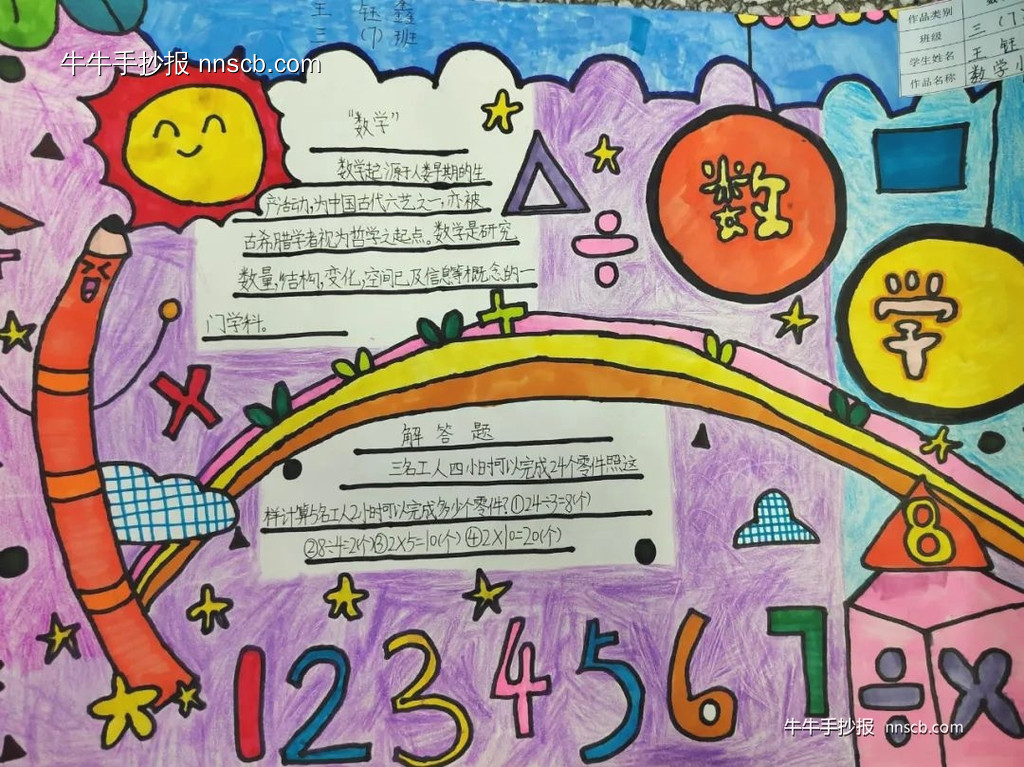 王钰鑫
三(7)班
牛牛手抄报 nnscb.com
作品类别
班级 三(7
学生姓名 王钰
作品名称 数学小
"数学"
数学起源于人类早期的生
产活动,为中国古代六艺之一,亦被
古希腊学者视为哲学之起点。数学是研究
数量,结构,变化,空间已及信息等概念的一
门学科。
数
学
÷
+
×
解答题
三名工人四小时可以完成24个零件照这
样计算5名工人2小时可以完成多少个零件?①24÷3=8(个)
②8÷4=2(个)③2×5=10(个)④2×10=20(个)
8
1 2 3 4 5 6 7
÷ ×
牛牛手抄报 nnscb.com